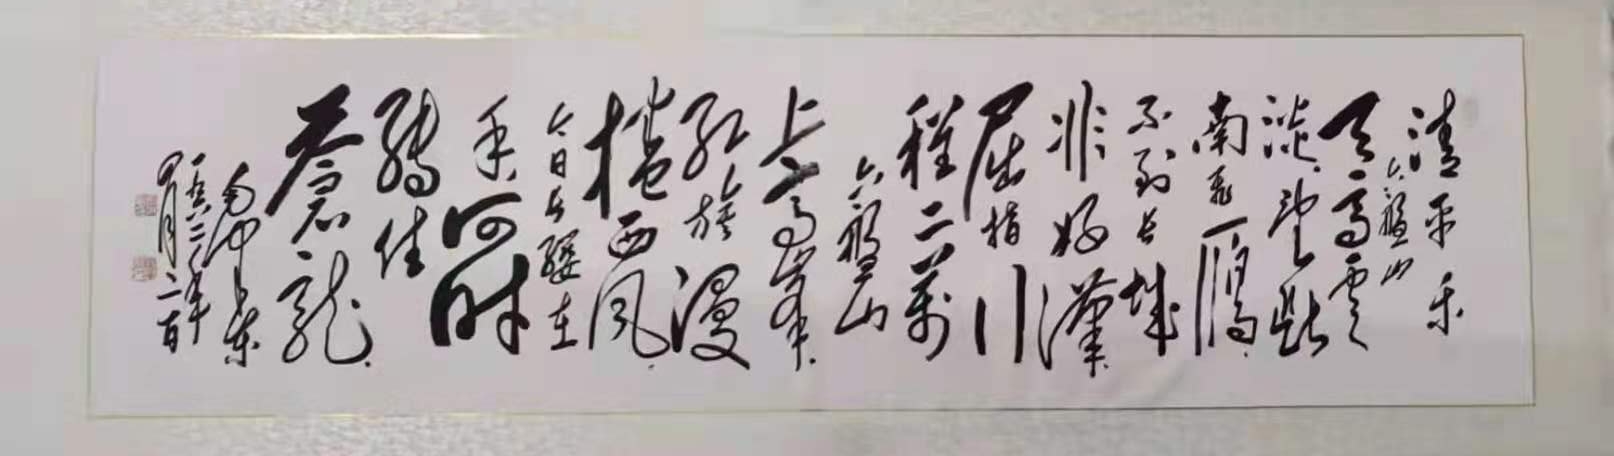 清平乐
六盤山
天高云
淡望断
南飛雁
不到长城
非好漢
屈指行
程二萬
六盤山
上高峰
红旗漫
捲西风
今日长缨在
手何时
缚住
蒼龍
毛泽东